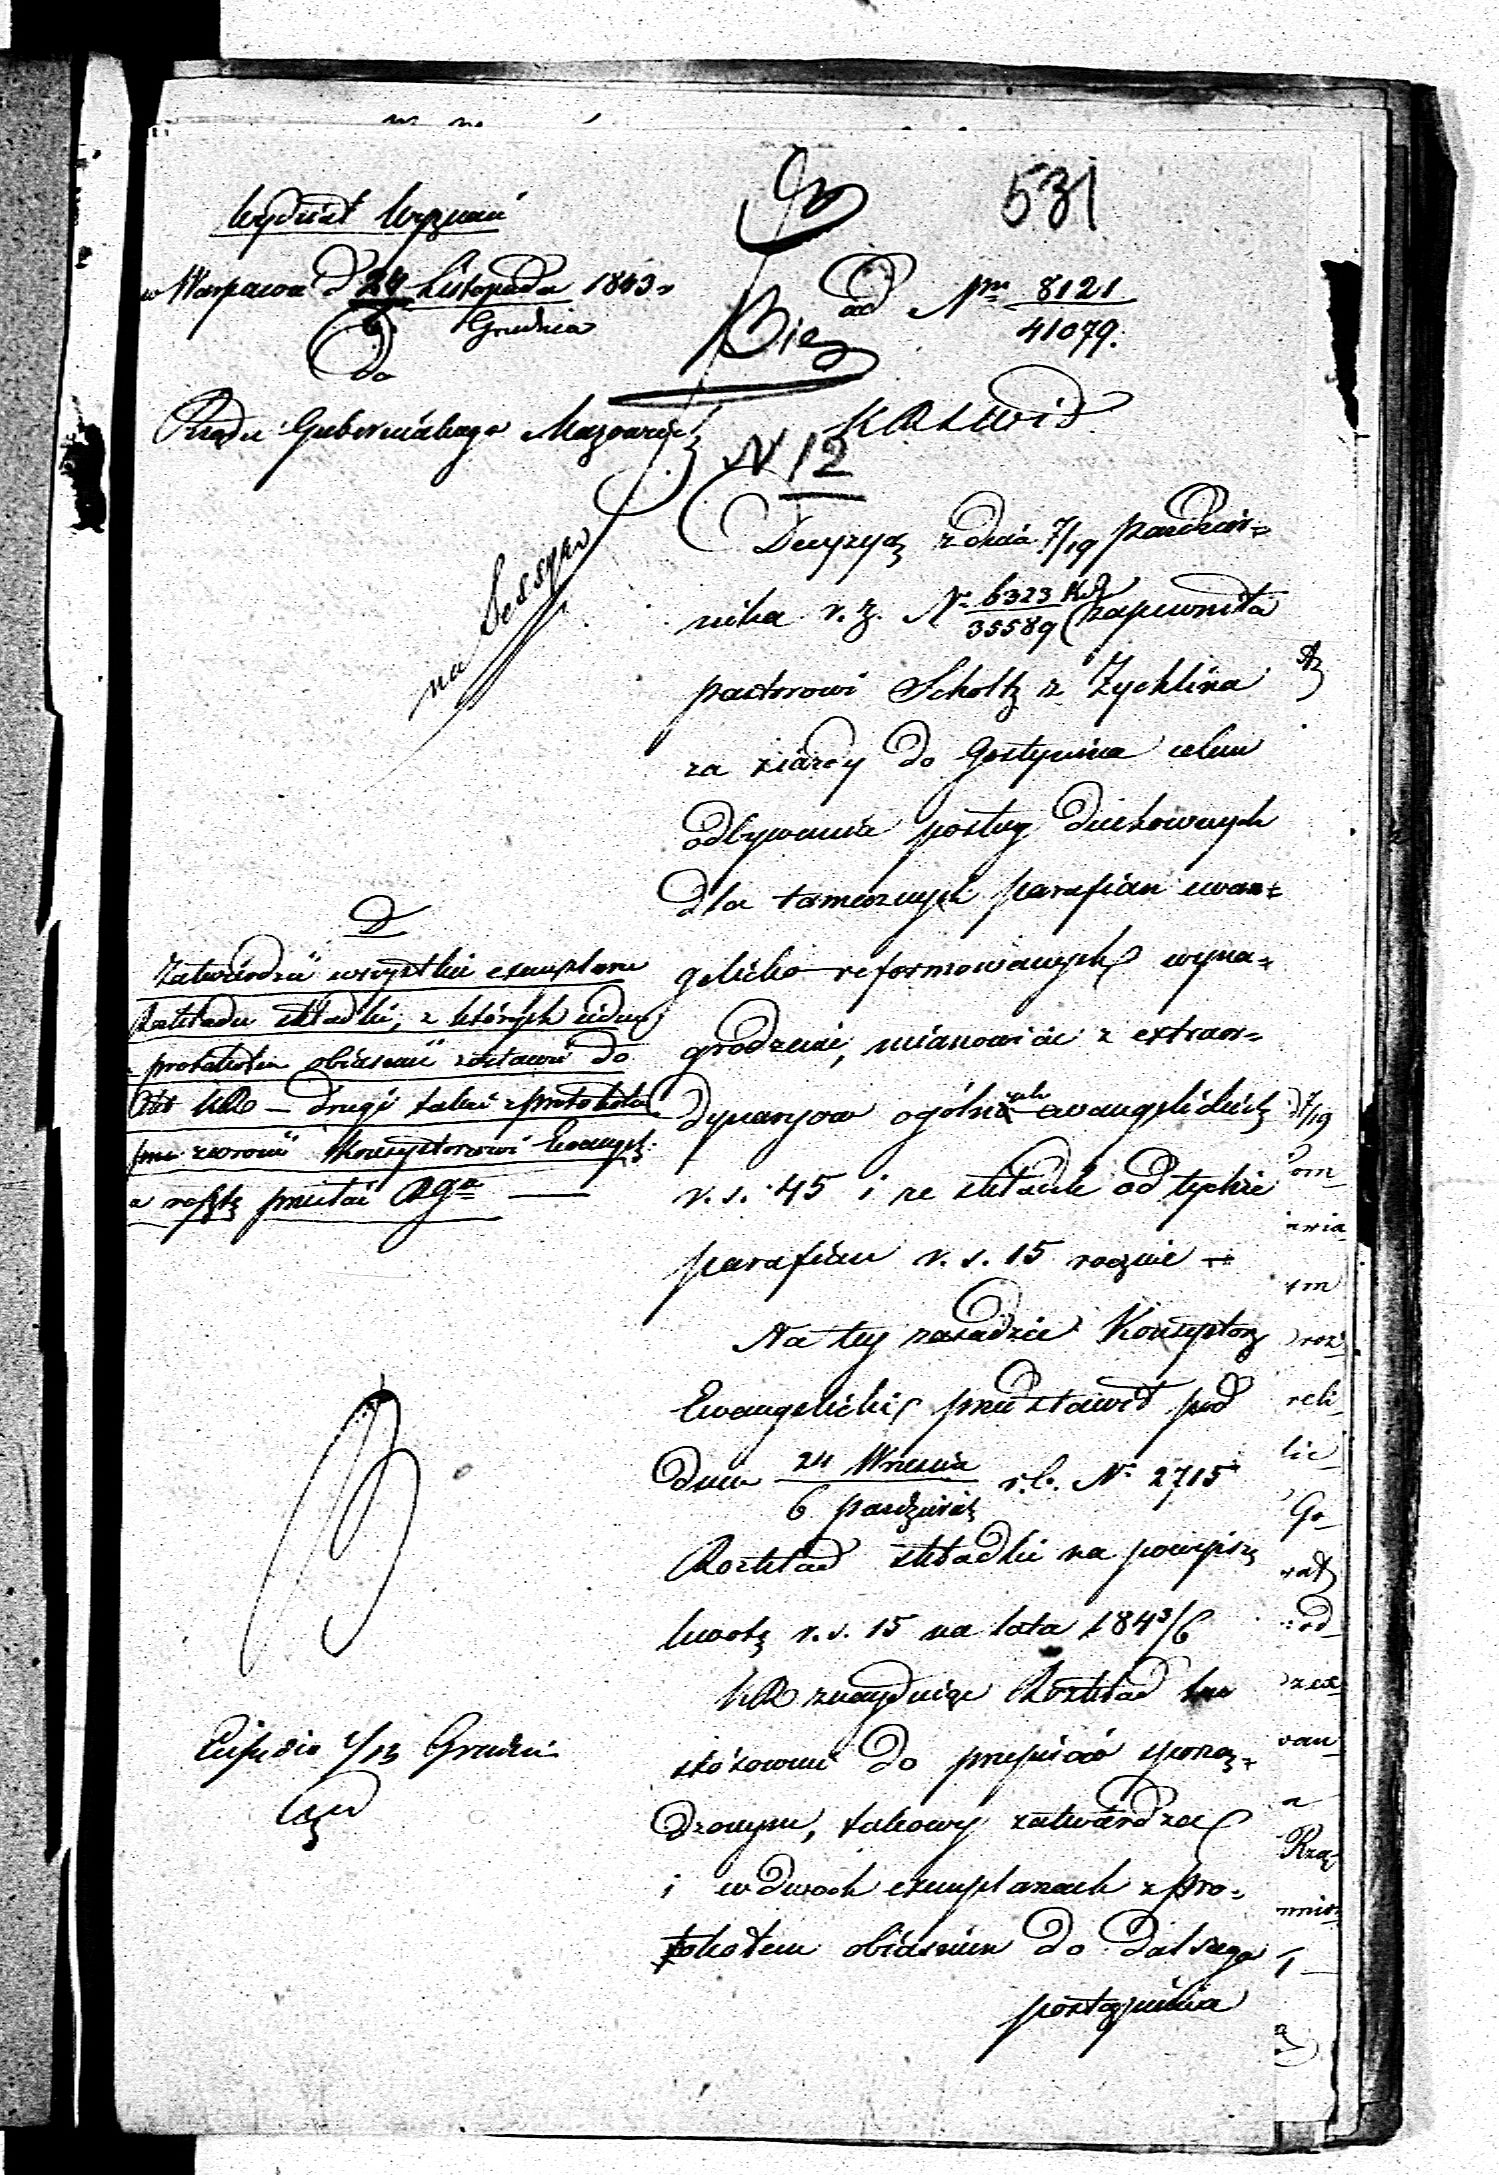 531
Wydział Wyznań
w Warszawie d 24 Listopada 1843 r
6 Grudnia
Do
Rządu Gubernialnego Mazowiec
Bie
ad Nrm 8121
41079.
N 12
na Sessyą
Decyzyą z dnia 7/19 Paździer=
nika r. z. Nr 6323
35589 zapewniła
pastorowi Scholtz z Żychlina
za ziazdy do Gostynina celem
odbywania posług duchownych
dla tamecznych parafian ewan=
gelicko-reformowanych wyna=
grodzenie, mianowicie z extraor=
dynaryow ogólno ewangelickich
r. s. 45 i ze składek od tychże
parafian r. s. 15 rocznie
Na tey zasadzie Konsystorz
Ewangelicki przedstawił pod
dniem 24 Września
6 Paździer r. b. Nr 2715
Rozkład składki na powyższą
kwotę r. s. 15 na lata 1843/6
KR znayduiąc Rozkład ten
stósownie do przepisów sporzą=
dzonym, takowy zatwierdza
i w dwóch exemplarzach z pro=
tokołem obiaśnień do dalszego
postąpienia
D
Zatwierdzić wszystkie exemplarze
Rozkładu składki, z których ieden
z protokołem obiaśnień zostawić do
Akt KR — drugi także z protokołem
zwrocić Konsystorzowi Ewangel.
a resztę przesłać RGo
1/13 Grudnia